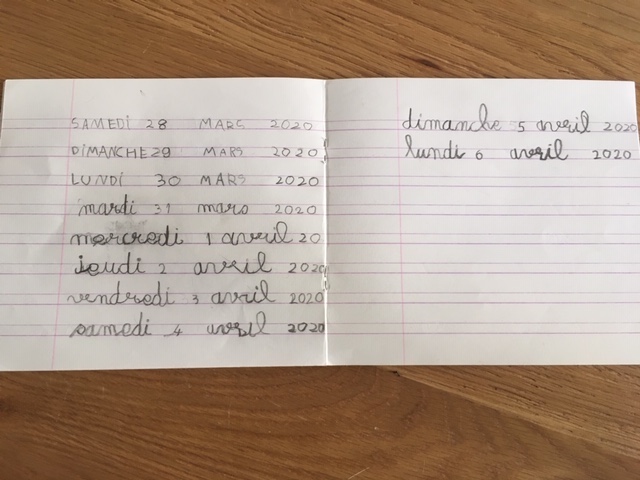 SAMEDI 28 MARS 2020
DIMANCHE 29 MARS 2020
LUNDI 30 MARS 2020
mardi 31 mars 2020
mercredi 1 avril 20
jeudi 2 avril 2020
vendredi 3 avril 2020
samedi 4 avril 2020
dimanche 5 avril 2020
lundi 6 avril 2020